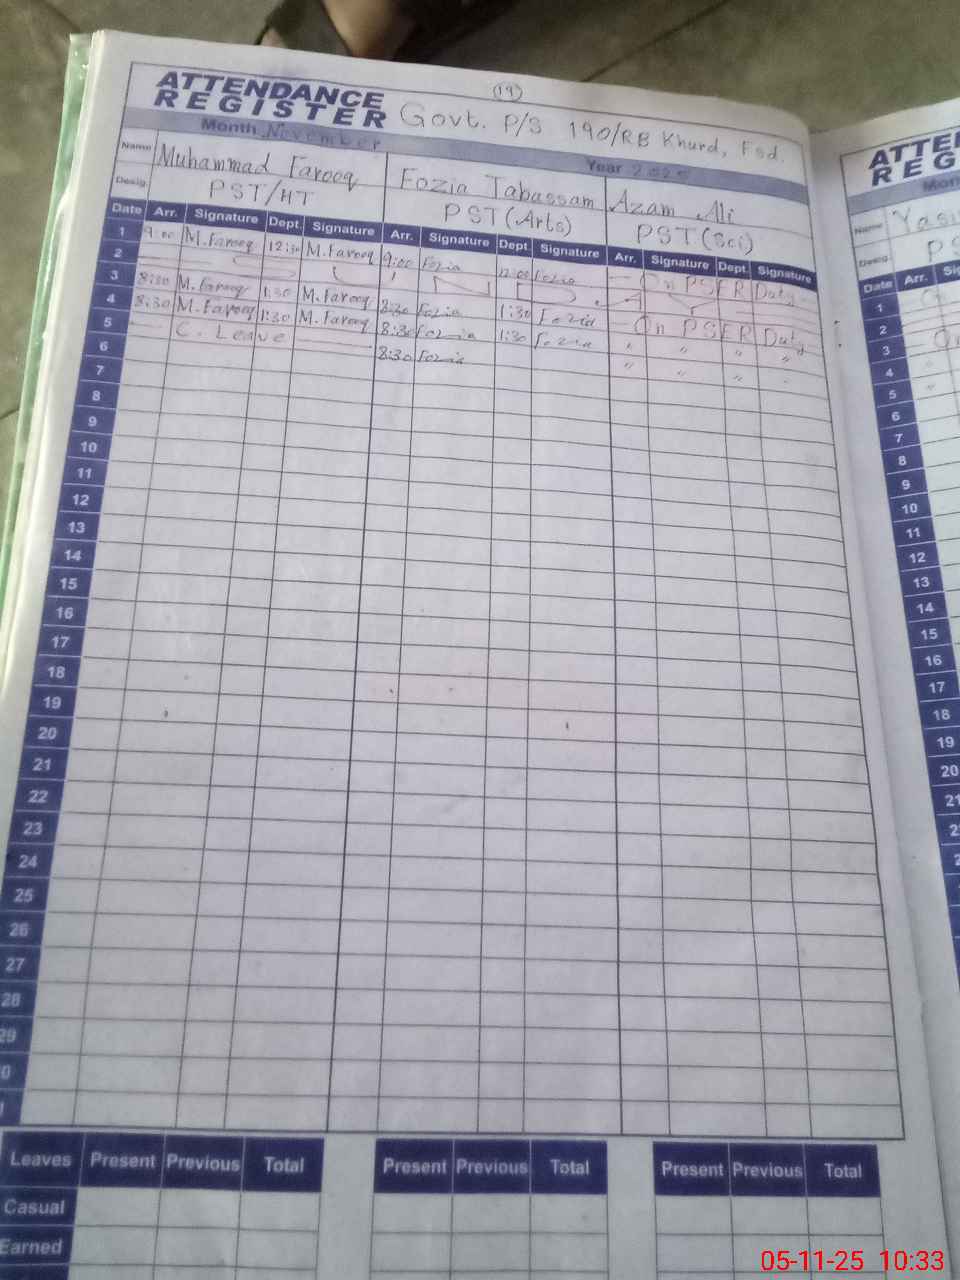 (19)
ATTENDANCE
REGISTER
Govt. P/S 190/RB Khurd, Fsd.
Month November Year 2025
Name Muhammad Farooq Fozia Tabassam Azam Ali
Desig. PST/HT PST(Arts) PST(Sci)
Date Arr. Signature Dept. Signature Arr. Signature Dept. Signature Arr. Signature Dept. Signature
1 9:00 M.Farooq 12:30 M.Farooq 9:00 Fozia 12:00 Fozia On PSER Duty
2 S U N D A Y
3 8:30 M.Farooq 1:30 M.Farooq 8:30 Fozia 1:30 Fozia On PSER Duty
4 8:30 M.Farooq 1:30 M.Farooq 8:30 Fozia 1:30 Fozia " " " "
5 C. Leave 8:30 Fozia " " "
6
7
8
9
10
11
12
13
14
15
16
17
18
19
20
21
22
23
24
25
26
27
28
29
Leaves Present Previous Total Present Previous Total Present Previous Total
Casual
Earned
ATTE
REG
Mon
Name
Desig. PS
Date Arr. Si
1
2
3
4
5
6
7
8
9
10
11
12
13
14
15
16
17
18
19
20
21
05-11-25 10:33